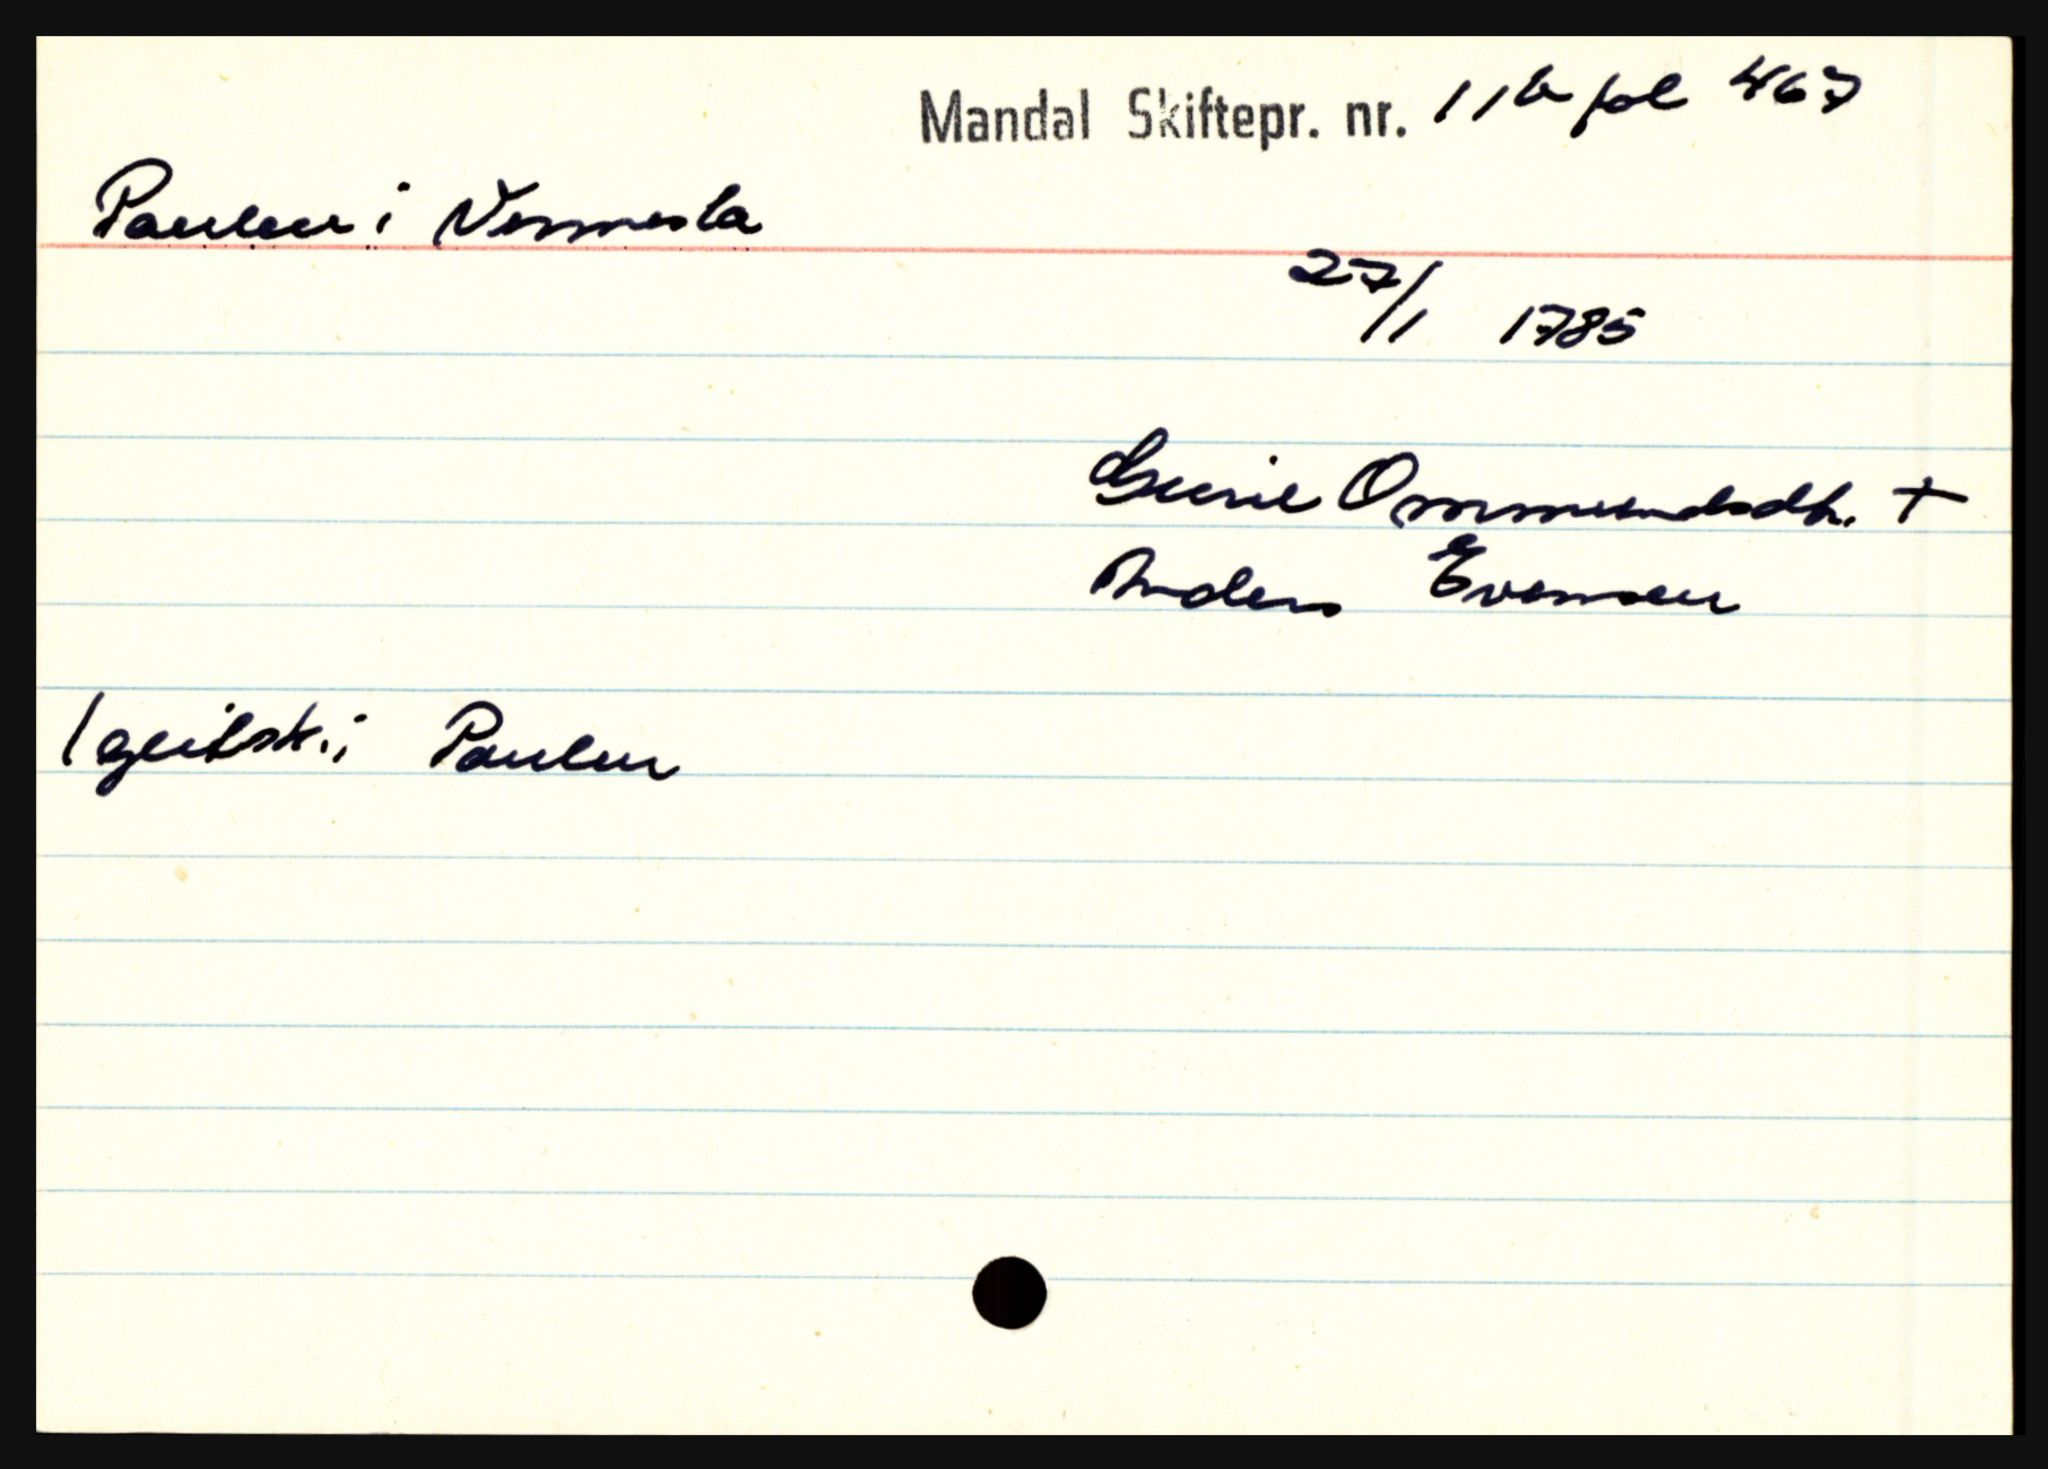 Mandal Skiftepr. nr. 11b fol 467
Paulen i Vennesla
27/1 1785
Gurie Ommundsdtr. +
Anders Evensen
1 geitski i Paulen